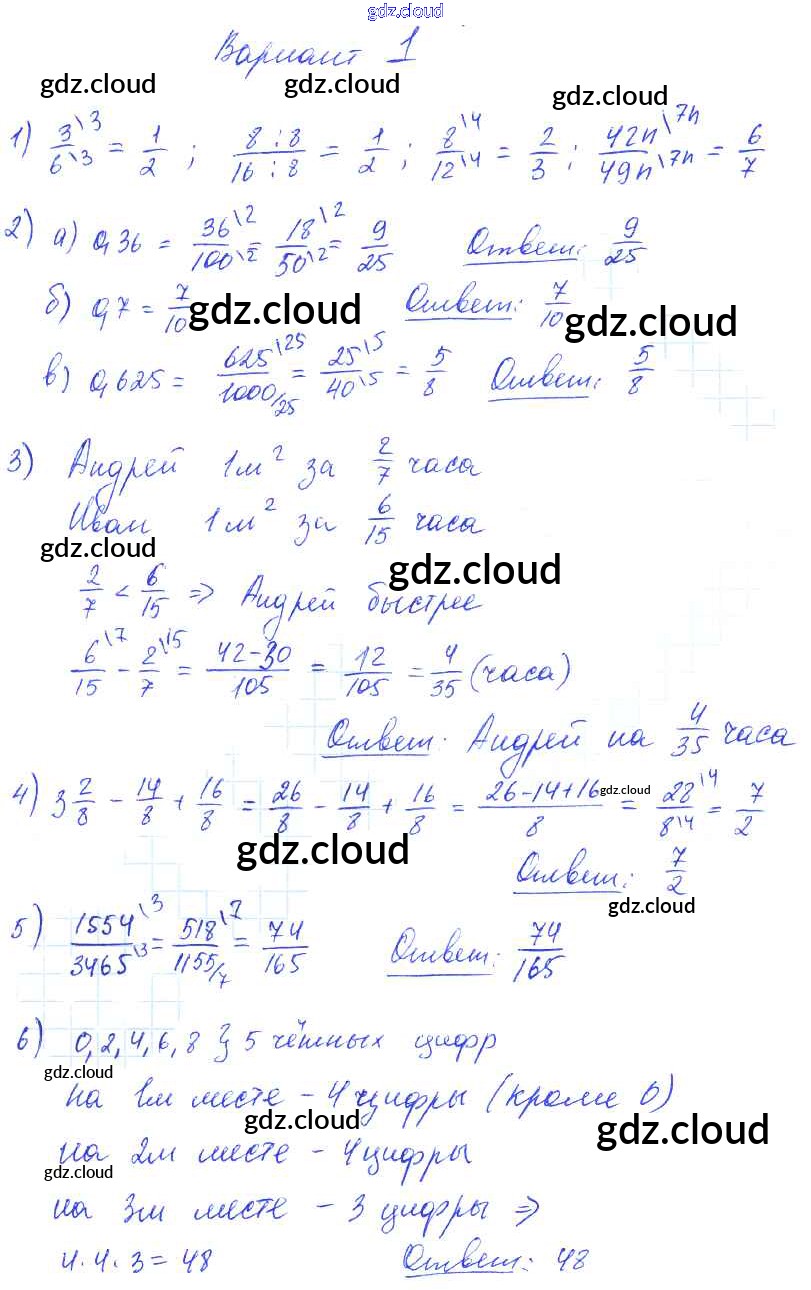 gdz.cloud
Вариант 1
gdz.cloud gdz.cloud gdz.cloud
1) 3\3/6\3 = 1/2 ; 8:8/16:8 = 1/2 ; 8\4/12\4 = 2/3 ; 42n\7n/49n\7n = 6/7
2) а) 0,36 = 36\2/100\2 = 18\2/50\2 = 9/25 Ответ: 9/25
б) 0,7 = 7/10 Ответ: 7/10
gdz.cloud gdz.cloud
в) 0,625 = 625\25/1000/25 = 25\5/40\5 = 5/8 Ответ: 5/8
3) Андрей 1м² за 2/7 часа
Иван 1м² за 6/15 часа
gdz.cloud gdz.cloud
2/7 < 6/15 => Андрей быстрее
6\7/15 - 2\15/7 = 42-30/105 = 12/105 = 4/35 (часа)
Ответ: Андрей на 4/35 часа
4) 3 2/8 - 14/8 + 16/8 = 26/8 - 14/8 + 16/8 = 26-14+16/8 = 28\4/8\4 = 7/2
gdz.cloud
gdz.cloud
Ответ: 7/2
gdz.cloud
5) 1554\3/3465\3 = 518\7/1155/7 = 74/165 Ответ: 74/165
6) 0,2,4,6,8 } 5 чётных цифр
gdz.cloud
на 1м месте - 4 цифры (кроме 0)
gdz.cloud gdz.cloud
на 2м месте - 4 цифры
gdz.cloud
на 3м месте - 3 цифры =>
4·4·3=48 Ответ: 48